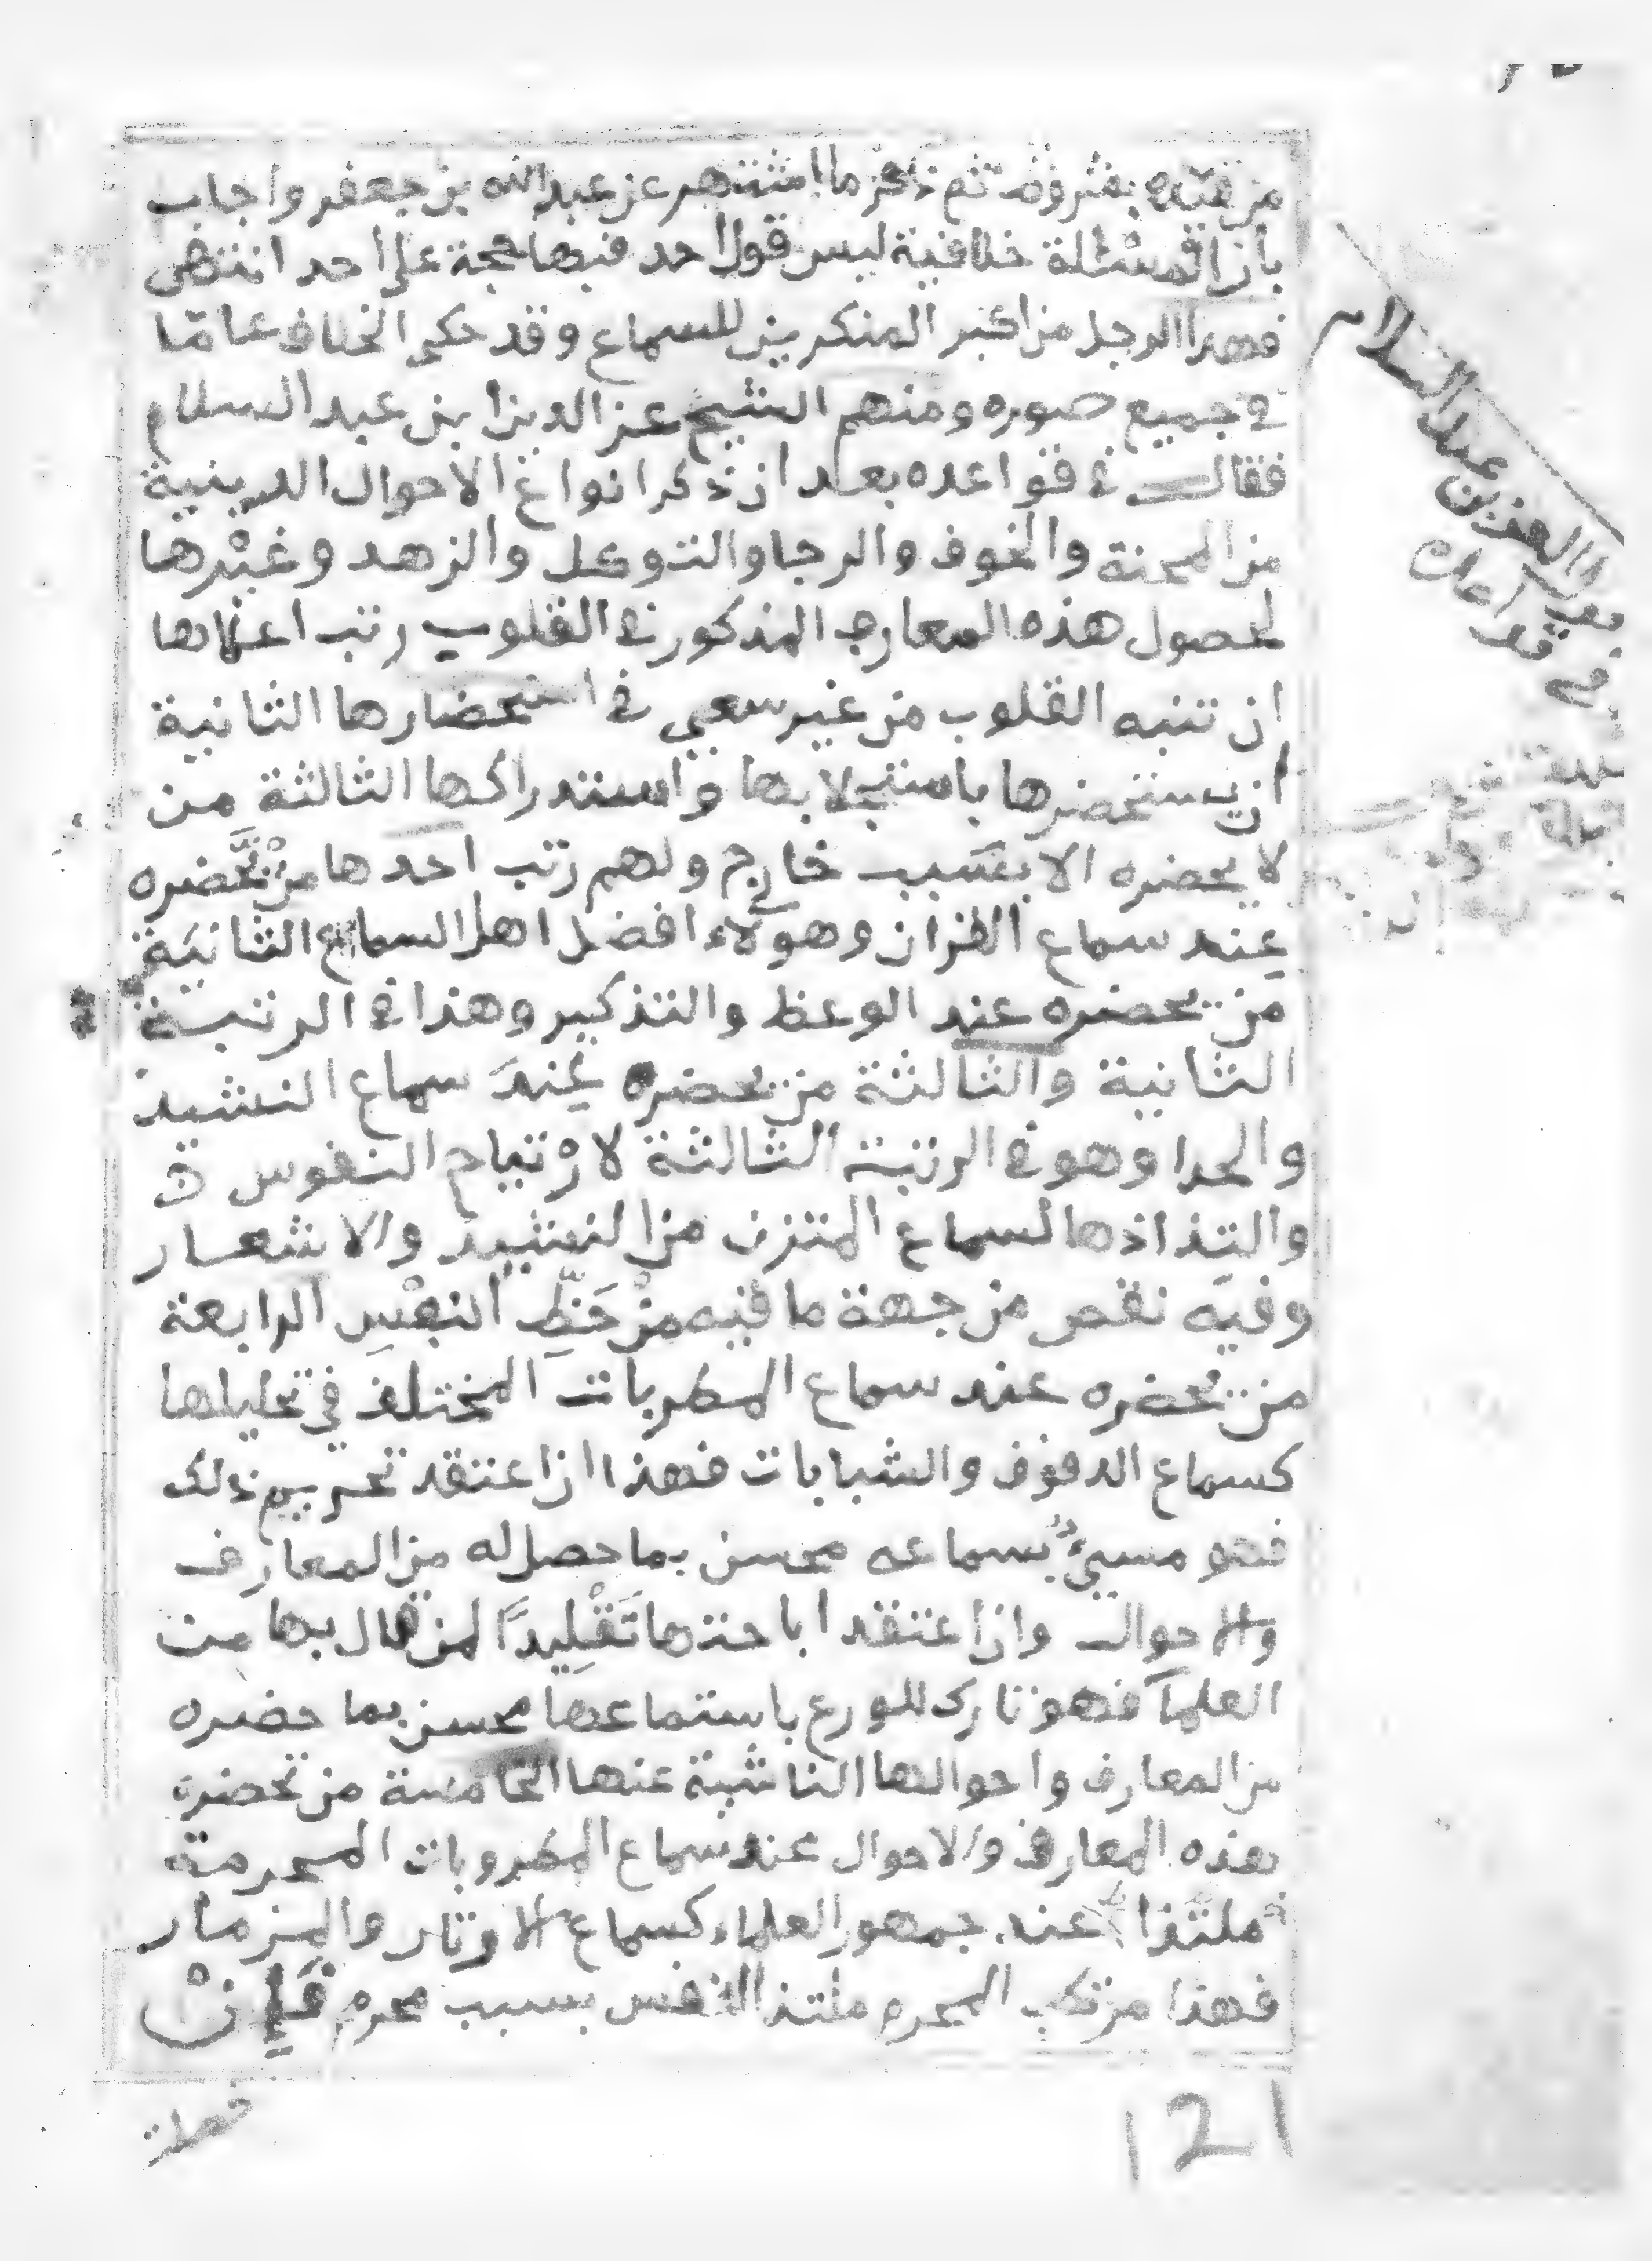 من قيده بشروط ثم ذكر ما اشتهر عن عبد الله بن جعفر واجاب
بان المسئلة خلافية ليس قول احد فيها حجة على احد انتهى
فهذا الرجل من اكبر المنكرين للسماع وقد حكى الخلاف عاما
في جميع صوره ومنهم الشيخ عز الدين ابن عبد السلام
فقال في قواعده بعد ان ذكر انواع الاحوال الدينية
من المحبة والخوف والرجا والتوكل والزهد وغيرها
لحصول هذه المعارف المذكور في القلوب رتب اعلاها
ان تنبه القلوب من غير سعي في استحضارها الثانية
ان يستحضرها باستجلابها واستدراكها الثالثة من
لا يحضره الا بسبب خارج ولهم رتب احدها من تحضره
عند سماع القران وهولاء افضل اهل السماع الثانية
من يحضره عند الوعظ والتذكير وهذا في الرتبة
الثانية والثالثة من يحضره عند سماع النشيد
والحدا وهو في الرتبة الثالثة لارْتياح النفوس
والتذاذها لسماع المتزن من النشيد والاشعار
وفيه نقص من جهة ما فيه من حَظِّ النفْسِ الرابعة
من تحضره عند سماع المطربات المختلف في تحليلها
كسماع الدفوف والشبابات فهذا ان اعتقد تحريم ذلك
فهو مسيىء بسماعه محسن بما حصل له من المعارف
والاحوال وان اعتقد اباحتها تَقْلِيدًا لمن قال بها من
العلمآ فهو تارك للورع باستماعها محسن بما حضره
من المعارف واحوالها الناشية عنها الخامسة من تحضره
هذه المعارف والاحوال عند سماع المطروبات المحرمة
ملتذا عند جمهور العلماء كسماع الاوتار والمزمار
فهذا مرتكب المحرم ملتذ النفس بسبب محرم فَإِنْ
حصلت
121
العز بن عبد السلام
في قواعده